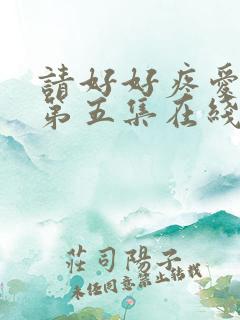 請好好疼愛
第五集在綫
莊司陽子
未经同意禁止转载